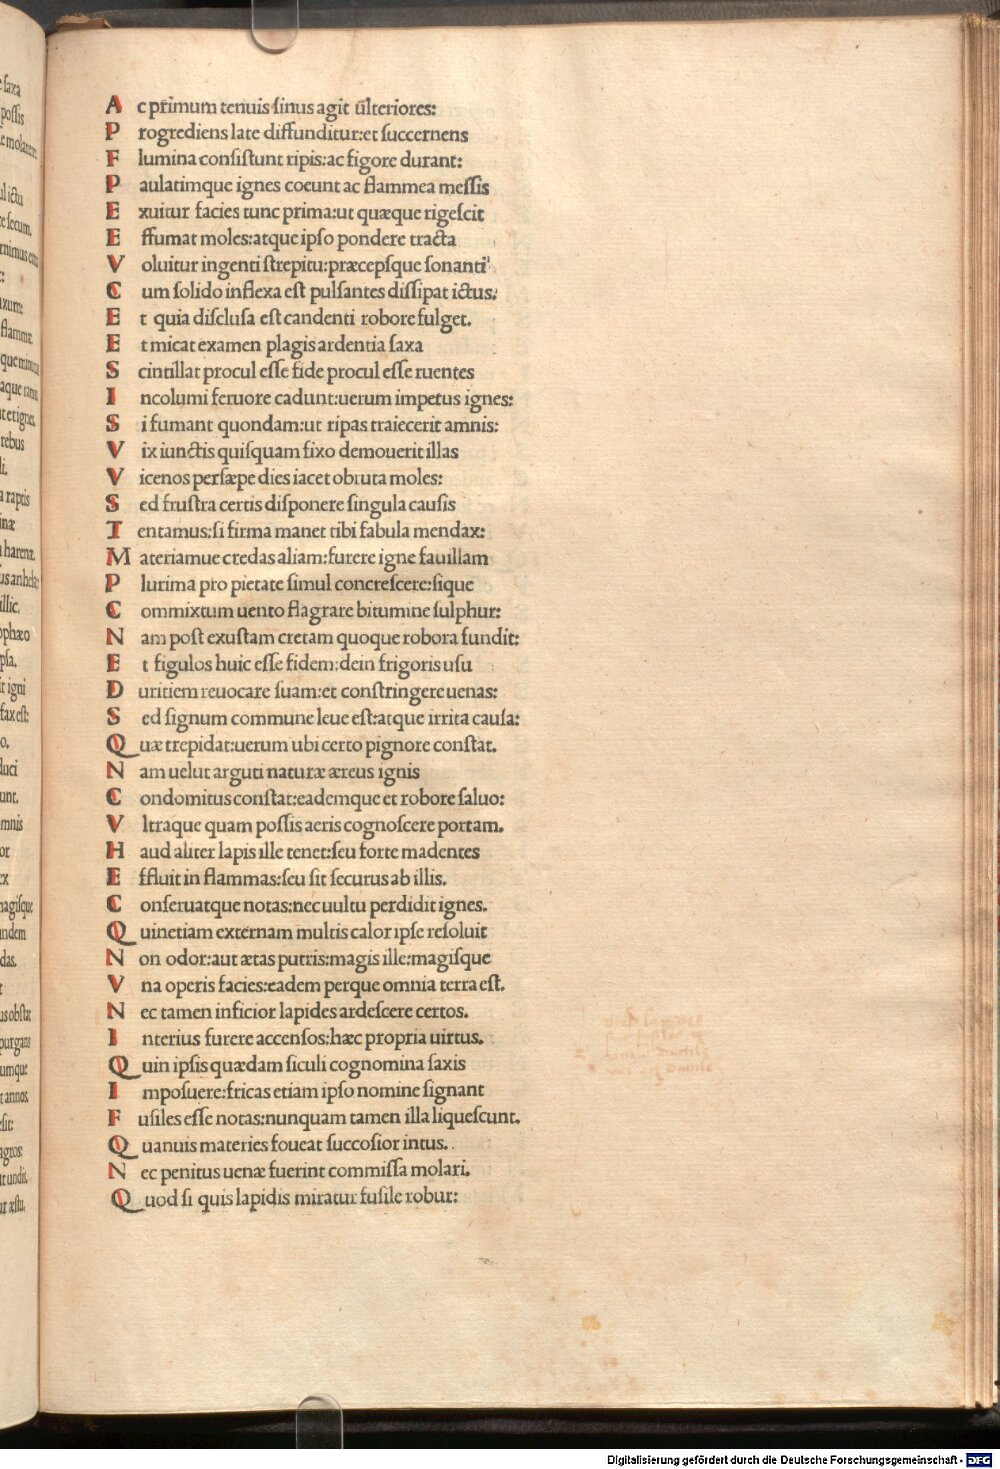 A c primum tenuis sinus agit ūlteriores:
P rogrediens late diffunditur:et succernens
F lumina consistunt ripis:ac figore durant:
P aulatimque ignes coeunt ac flammea messis
E xuitur facies tunc prima:ut quæque rigescit
E ffumat moles:atque ipso pondere tracta
V oluitur ingenti strepitu:præcepsque sonanti
C um solido inflexa est pulsantes dissipat ictus:
E t quia disclusa est candenti robore fulget.
E t micat examen plagis ardentia saxa
S cintillat procul esse fide procul esse ruentes
I ncolumi feruore cadunt:uerum impetus ignes:
S i fumant quondam:ut ripas traiecerit amnis:
V ix iunctis quisquam fixo demouerit illas
V icenos persæpe dies iacet obruta moles:
S ed frustra certis disponere singula causis
T entamus:si firma manet tibi fabula mendax:
M ateriamue credas aliam:furere igne fauillam
P lurima pro pietate simul concrescere:sique
C ommixtum uento flagrare bitumine sulphur:
N am post exustam cretam quoque robora fundit:
E t figulos huic esse fidem:dein frigoris usu
D uritiem reuocare suam:et constringere uenas:
S ed signum commune leue est:atque irrita causa:
Q uæ trepidat:uerum ubi certo pignore constat.
N am uelut arguti naturæ æreus ignis
C ondomitus constat:eademque et robore saluo:
V ltraque quam possis aeris cognoscere portam.
H aud aliter lapis ille tenet:seu forte madentes
E ffluit in flammas:seu sit securus ab illis.
C onseruatque notas:nec uultu perdidit ignes.
Q uinetiam externam multis calor ipse resoluit
N on odor:aut ætas putris:magis ille:magisque
V na operis facies:eadem perque omnia terra est.
N ec tamen inficior lapides ardescere certos.
I nterius furere accensos:hæc propria uirtus.
Q uin ipsis quædam siculi cognomina saxis
I mposuere:fricas etiam ipso nomine signant
F usiles esse notas:nunquam tamen illa liquescunt.
Q uanuis materies foueat succosior intus.
N ec penitus uenæ fuerint commissa molari.
Q uod si quis lapidis miratur fusile robur:
Digitalisierung gefördert durch die Deutsche Forschungsgemeinschaft - DFG